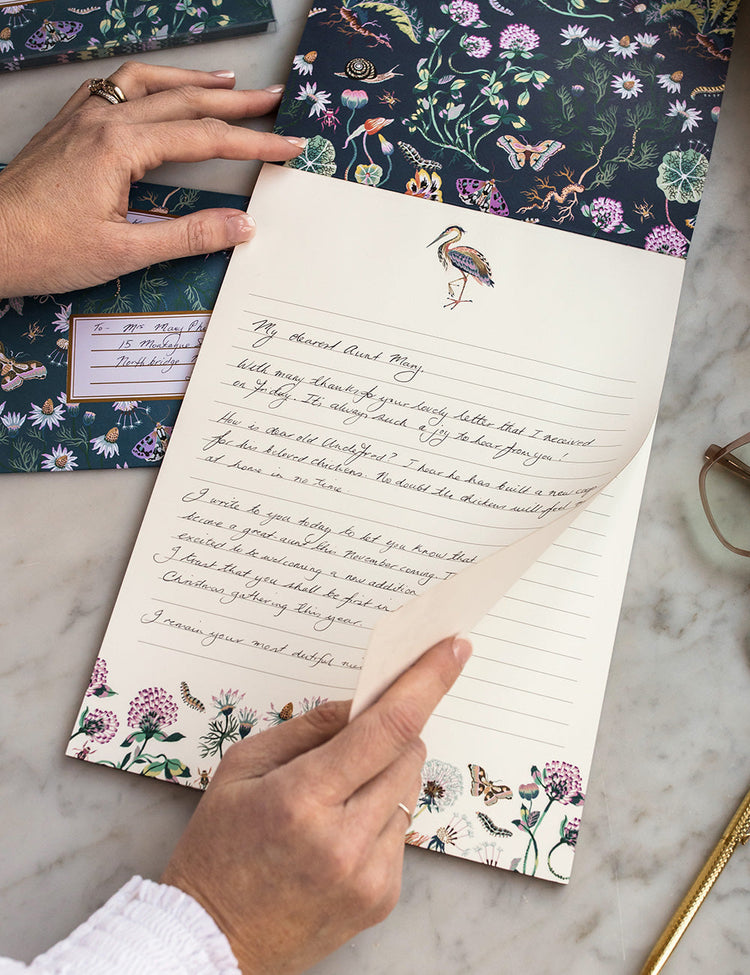 To - Mrs Mary Ph
15 Montague S
Northbridge
My dearest Aunt Mary,
With many thanks for your lovely letter that I received
on Friday. It's always such a joy to hear from you!
How is dear old Uncle Fred? I hear he has built a new
for his beloved chickens. No doubt the chickens will feel
at home in no time
I write to you today to let you know that
become a great aunt this November coming.
excited to be welcoming a new addition
I trust that you shall be first in
Christmas gathering this year.
I remain your most dutiful